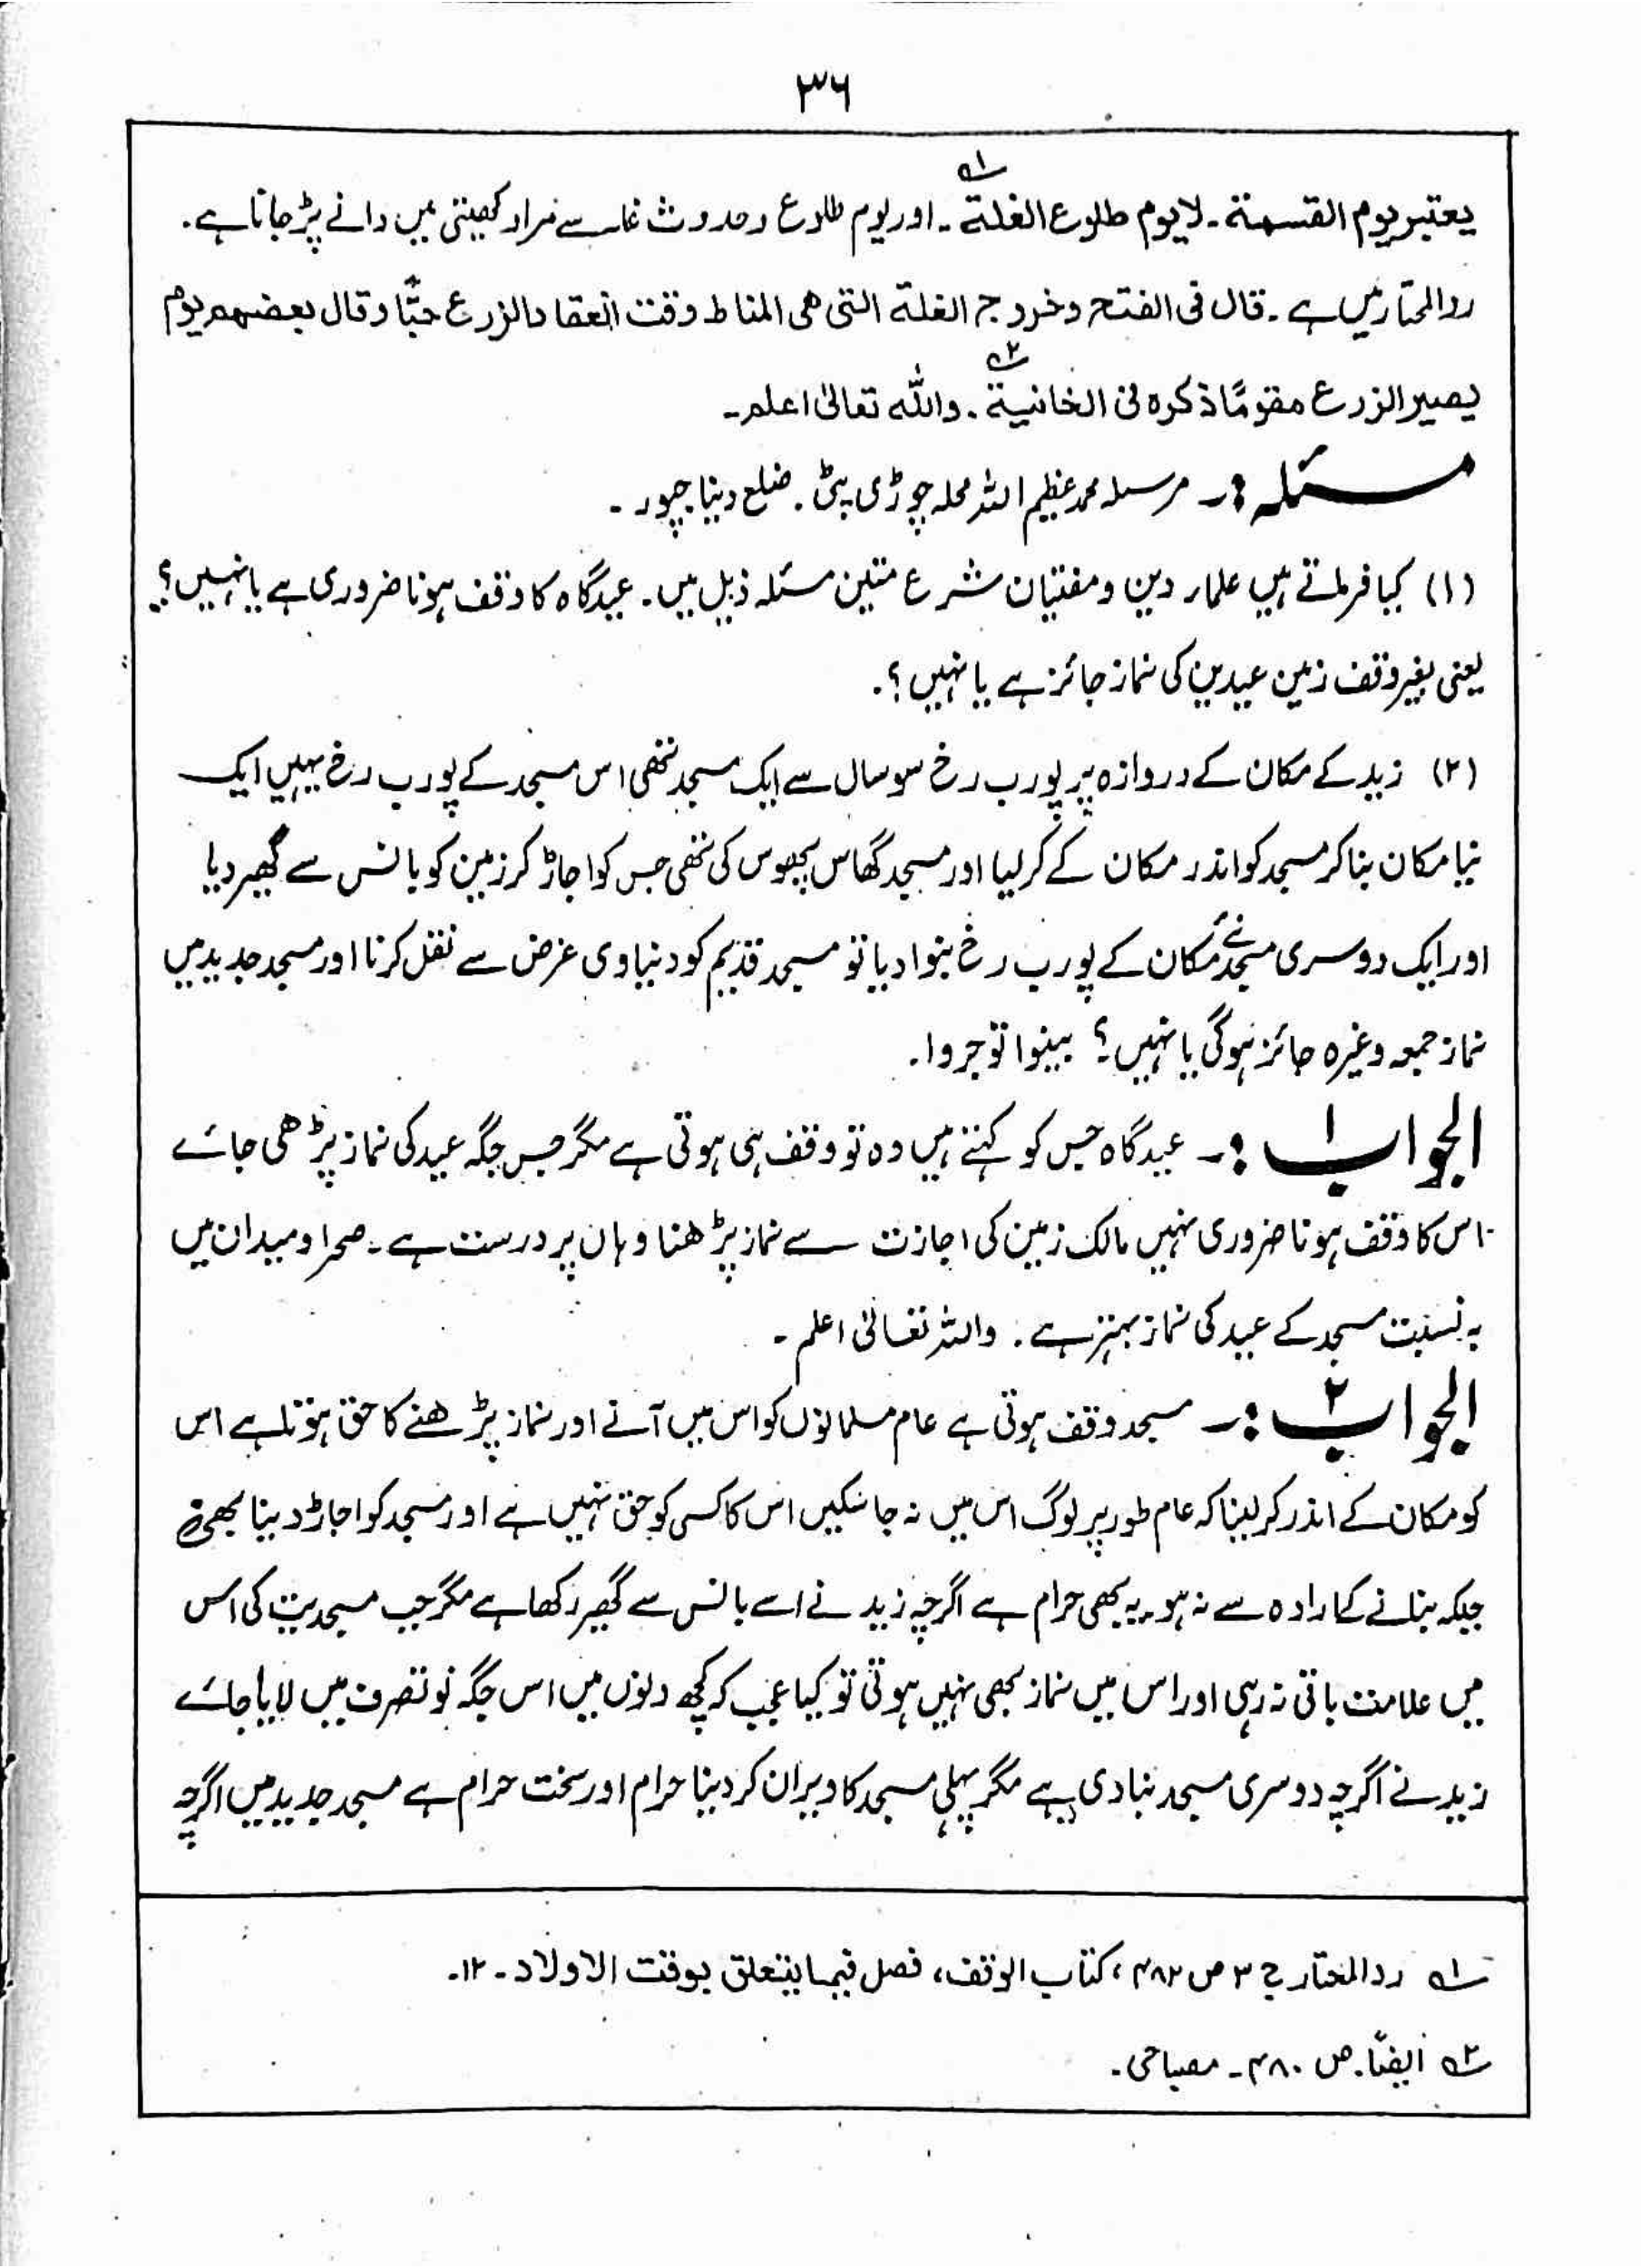 ۳۶
یعتبر یوم القسمة۔ لا یوم طلوع الغلة ؎۱۔ اور یوم طلوع و حدوث غلہ سے مراد کھیتی میں دانے پڑ جانا ہے۔
ردالمحتار میں ہے۔ قال فی الفتح و خروج الغلة التی ھی المناط وقت انعقاد الزرع حبًّا و قال بعضھم یوم
یصیر الزرع متقومًا ذکرہ فی الخانیة ؎۲۔ واللہ تعالیٰ اعلم۔
مسئلہ:۔ مرسلہ محمد عظیم اللہ محلہ چوڑی پٹی۔ ضلع دیناجپور۔
(۱) کیا فرماتے ہیں علماء دین و مفتیان شرع متین مسئلہ ذیل میں۔ عیدگاہ کا وقف ہونا ضروری ہے یا نہیں؟
یعنی بغیر وقف زمین عیدین کی نماز جائز ہے یا نہیں؟۔
(۲) زید کے مکان کے دروازہ پر پورب رخ سو سال سے ایک مسجد تھی اس مسجد کے پورب رخ یہیں ایک
نیا مکان بنا کر مسجد کو اندر مکان کے کر لیا اور مسجد گھاس پھوس کی تھی جس کو اجاڑ کر زمین کو بانس سے گھیر دیا
اور ایک دوسری مسجد نئے مکان کے پورب رخ بنوا دیا تو مسجد قدیم کو دنیاوی غرض سے نقل کرنا اور مسجد جدید میں
نماز جمعہ وغیرہ جائز ہوگی یا نہیں؟ بینوا توجروا۔
الجواب ۱:۔ عیدگاہ جس کو کہتے ہیں وہ تو وقف ہی ہوتی ہے مگر جس جگہ عید کی نماز پڑھی جائے
اس کا وقف ہونا ضروری نہیں مالک زمین کی اجازت سے نماز پڑھنا وہاں پر درست ہے۔ صحرا و میدان میں
بہ نسبت مسجد کے عید کی نماز بہتر ہے۔ واللہ تعالیٰ اعلم۔
الجواب ۲:۔ مسجد وقف ہوتی ہے عام مسلمانوں کو اس میں آنے اور نماز پڑھنے کا حق ہوتا ہے اس
کو مکان کے اندر کر لینا کہ عام طور پر لوگ اس میں نہ جا سکیں اس کا کسی کو حق نہیں ہے اور مسجد کو اجاڑ دینا بھی
جبکہ بنانے کے ارادہ سے نہ ہو یہ بھی حرام ہے اگرچہ زید نے اسے بانس سے گھیر رکھا ہے مگر جب مسجدیت کی اس
میں علامت باقی نہ رہی اور اس میں نماز بھی نہیں ہوتی تو کیا عجب کہ کچھ دنوں میں اس جگہ کو تصرف میں لایا جائے
زید نے اگرچہ دوسری مسجد بنا دی ہے مگر پہلی مسجد کا ویران کر دینا حرام اور سخت حرام ہے مسجد جدید میں اگرچہ
؎۱ ردالمحتار ج ۳ ص ۴۸۲، کتاب الوقف، فصل فیما یتعلق بوقف الاولاد۔ ۱۲۔
؎۲ ایضًا۔ ص ۴۸۰۔ مصباحی۔